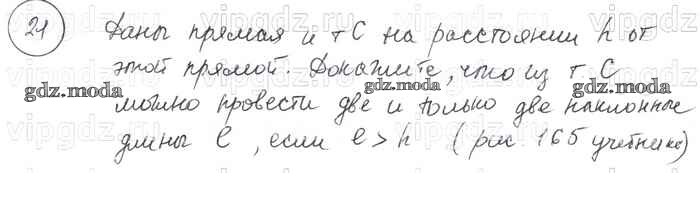 21 Даны прямая и т С на расстоянии h от
этой прямой. Докажите, что из т С
gdz.moda gdz.moda gdz.moda
можно провести две и только две наклонные
длины l, если l > h (рис 165 учебника)
vipgdz.ru vipgdz.ru vipgdz.ru